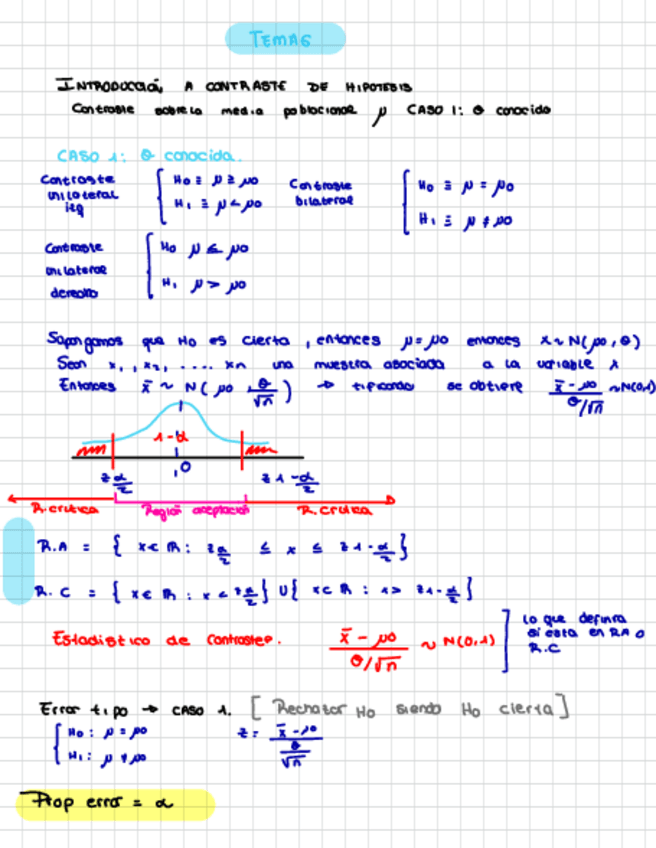 TEMA6
INTRODUCCIÓN A CONTRASTE DE HIPOTESIS
Contraste sobre la media poblacional μ CASO 1: θ conocido
CASO 1: θ conocida.
Contraste unilateral izq { H0 ≡ μ ≥ μ0
H1 ≡ μ < μ0
Contraste bilateral { H0 ≡ μ = μ0
H1 ≡ μ ≠ μ0
Contraste unilateral derecho { H0 μ ≤ μ0
H1 μ > μ0
Supongamos que H0 es cierta, entonces μ = μ0 entonces x ~ N(μ0, θ)
Sean x1, x2, .... xn una muestra asociada a la variable x
Entonces x̄ ~ N(μ0, θ/√n) → tipificando se obtiene (x̄ - μ0)/(θ/√n) ~ N(0,1)
1-α
0
z α/2
z 1-α/2
R.critica Región aceptación R.critica
R.A = { x ∈ R : z α/2 ≤ x ≤ z 1-α/2 }
R.C = { x ∈ R : x < z α/2 } U { x ∈ R : x > z 1-α/2 }
Estadístico de contraste. (x̄ - μ0)/(θ/√n) ~ N(0,1) ]
lo que definira
si esta en RA o
R.C
Error tipo → CASO 1. [ Rechazar H0 siendo H0 cierta ]
{ H0 : μ = μ0
H1 : μ ≠ μ0
z = (x̄ - μ0)/(θ/√n)
Prop error = α